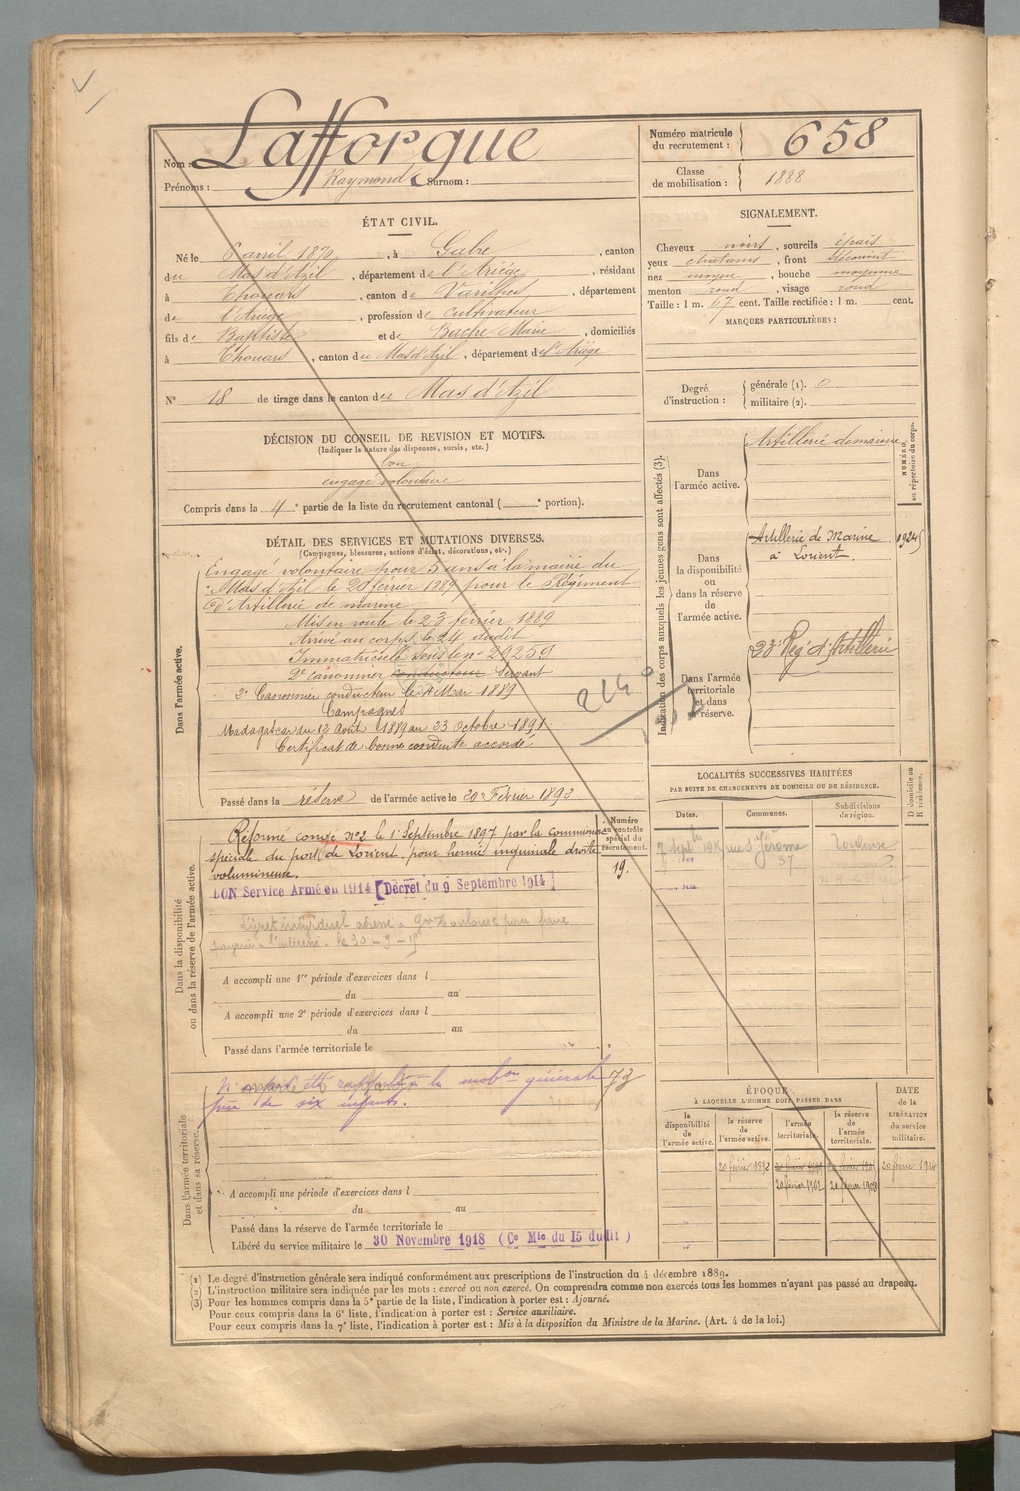 Nom : Lafforgue
Prénoms : Raymond Surnom :
Numéro matricule du recrutement : 658
Classe de mobilisation : 1888
ÉTAT CIVIL.
Né le 6 avril 1870, à Gabre, canton
du Mas d'Azil, département de l'Ariège, résidant
à Thouars, canton de Varilhes, département
de l'Ariège, profession de Cultivateur
fils de Baptiste et de Marie, domiciliés
à Thouars, canton du Mas d'Azil, département de l'Ariège
N° 18 de tirage dans le canton du Mas d'Azil
SIGNALEMENT.
Cheveux noirs, sourcils épais
yeux chatains, front découvert
nez moyen, bouche moyenne
menton rond, visage rond
Taille : 1 m. 67 cent. Taille rectifiée : 1 m. cent.
MARQUES PARTICULIÈRES :
Degré d'instruction : générale (1). 0
militaire (2).
DÉCISION DU CONSEIL DE REVISION ET MOTIFS.
(Indiquer la nature des dispenses, sursis, etc.)
bon
engagé volontaire
Compris dans la 4e partie de la liste du recrutement cantonal ( e portion).
DÉTAIL DES SERVICES ET MUTATIONS DIVERSES.
(Campagnes, blessures, actions d'éclat, décorations, etc.)
Dans l'armée active.
Engagé volontaire pour 5 ans à la mairie du
Mas d'Azil le 20 février 1889 pour le Régiment
d'Artillerie de marine
Mis en route le 23 février 1889
Arrivé au corps le 24 dudit
Immatriculé sous le n° 20259
2e canonnier conducteur Servant
2e Canonnier conducteur le 4 Mai 1889
Campagnes
Madagascar du 12 Août 1889 au 23 Octobre 1891
Certificat de bonne conduite accordé
Passé dans la réserve de l'armée active le 20 Février 1892
Indication des corps auxquels les jeunes gens sont affectés (3).
NUMÉRO au répertoire du corps.
Dans l'armée active.
Artillerie de marine
Dans la disponibilité ou dans la réserve de l'armée active.
Artillerie de Marine à Lorient.
Dans l'armée territoriale et dans sa réserve.
23e Reg d'Artillerie
Dans la disponibilité ou dans la réserve de l'armée active.
Numéro au contrôle spécial du recrutement.
Réformé congé n°2 le 1er Septembre 1897 par la commission
spéciale du port de Lorient, pour hernie inguinale droite
volumineuse.
19.
BON Service Armé en 1914 [Décret du 9 Septembre 1914]
A accompli une 1re période d'exercices dans l
du au
A accompli une 2e période d'exercices dans l
du au
Passé dans l'armée territoriale le
Dans l'armée territoriale et dans sa réserve.
N' été à la mobon générale
père de six enfants.
A accompli une période d'exercices dans l
du au
Passé dans la réserve de l'armée territoriale le
Libéré du service militaire le 30 Novembre 1918 (Ce Mle du 15 dudit)
LOCALITÉS SUCCESSIVES HABITÉES
PAR SUITE DE CHANGEMENTS DE DOMICILE OU DE RÉSIDENCE.
Dates. Communes. Subdivisions de région. D domicile ou R résidence.
7 Sept rue St Jérome Toulouse
37
ÉPOQUE
À LAQUELLE L'HOMME DOIT PASSER DANS
la disponibilité de l'armée active. la réserve de l'armée active. l'armée territoriale. la réserve de l'armée territoriale.
DATE de la LIBÉRATION du service militaire.
20 février 1892
20 février 1902 20 février 1908
(1) Le degré d'instruction générale sera indiqué conformément aux prescriptions de l'instruction du 4 décembre 1889.
(2) L'instruction militaire sera indiquée par les mots : exercé ou non exercé. On comprendra comme non exercés tous les hommes n'ayant pas passé au drapeau.
(3) Pour les hommes compris dans la 5e partie de la liste, l'indication à porter est : Ajourné.
Pour ceux compris dans la 6e liste, l'indication à porter est : Service auxiliaire.
Pour ceux compris dans la 7e liste, l'indication à porter est : Mis à la disposition du Ministre de la Marine. (Art. 4 de la loi.)